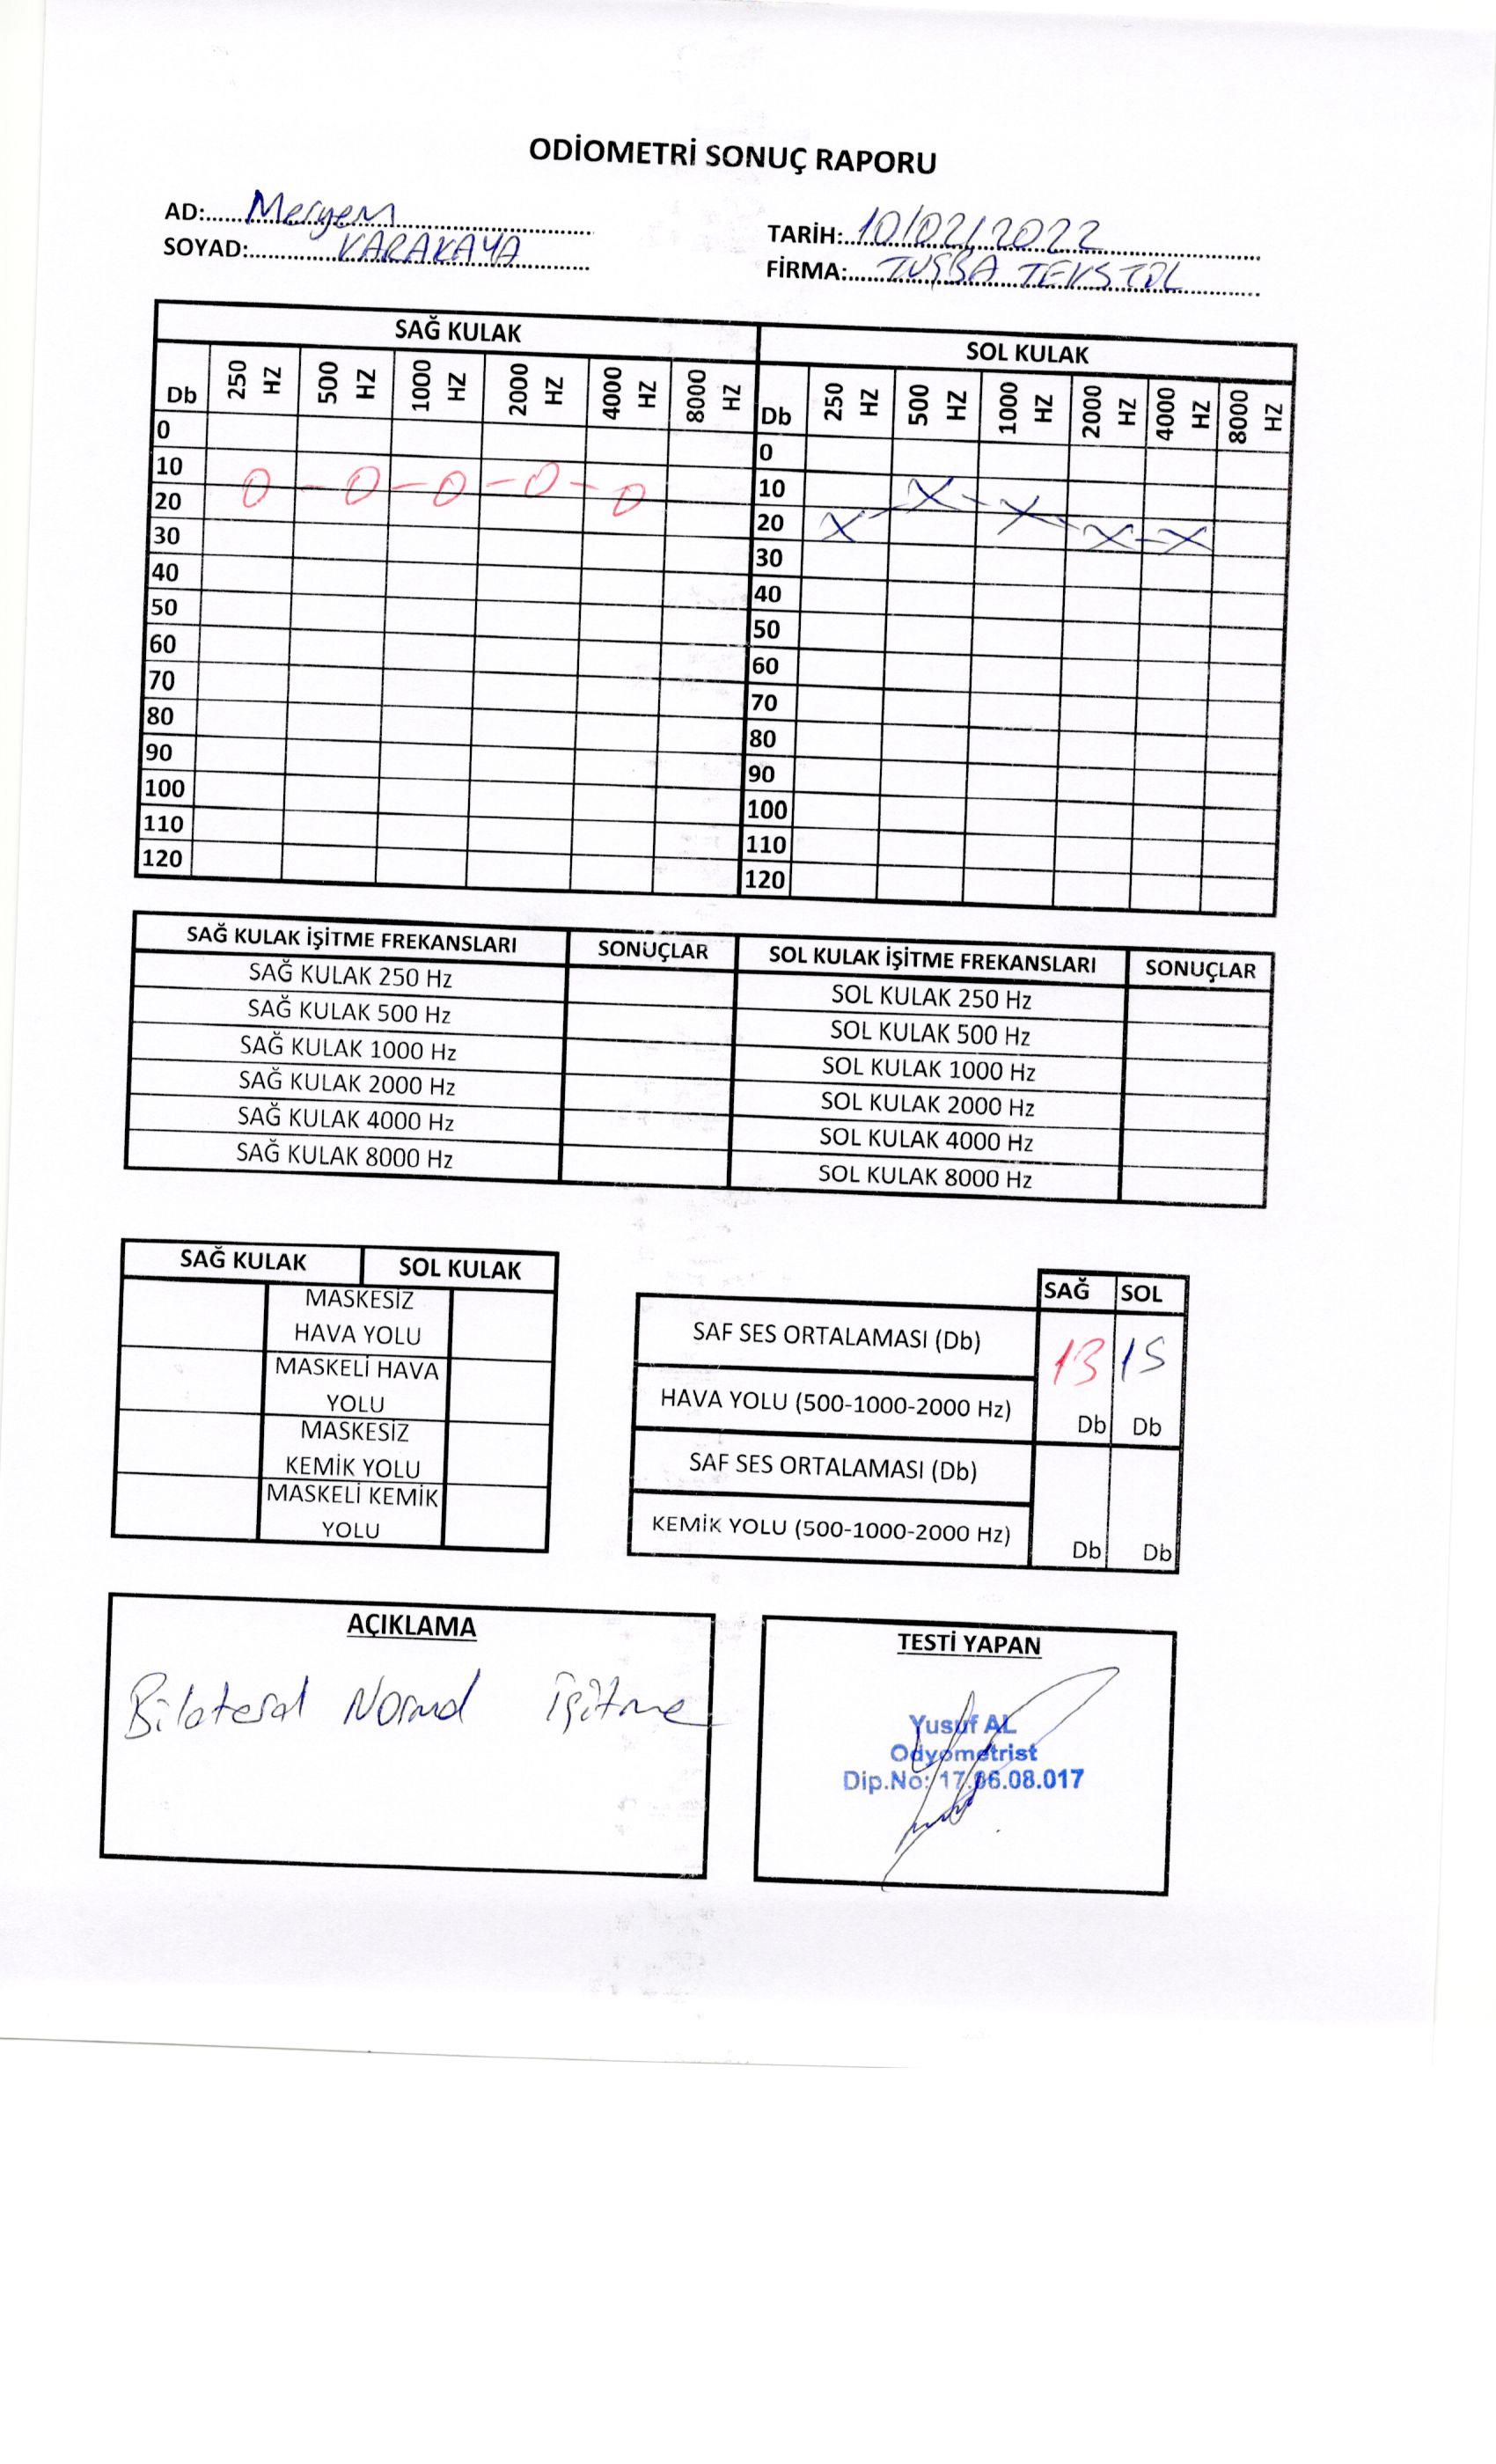 ODİOMETRİ SONUÇ RAPORU
AD:.....Meryem
SOYAD:.....KARAKAYA
TARİH:..10/02/2022
FİRMA:.....TUŞBA TEKSTİL
SAĞ KULAK SOL KULAK
Db 250 HZ 500 HZ 1000 HZ 2000 HZ 4000 HZ 8000 HZ Db 250 HZ 500 HZ 1000 HZ 2000 HZ 4000 HZ 8000 HZ
0 0
10 10
20 20
30 30
40 40
50 50
60 60
70 70
80 80
90 90
100 100
110 110
120 120
SAĞ KULAK İŞİTME FREKANSLARI SONUÇLAR SOL KULAK İŞİTME FREKANSLARI SONUÇLAR
SAĞ KULAK 250 Hz SOL KULAK 250 Hz
SAĞ KULAK 500 Hz SOL KULAK 500 Hz
SAĞ KULAK 1000 Hz SOL KULAK 1000 Hz
SAĞ KULAK 2000 Hz SOL KULAK 2000 Hz
SAĞ KULAK 4000 Hz SOL KULAK 4000 Hz
SAĞ KULAK 8000 Hz SOL KULAK 8000 Hz
SAĞ KULAK SOL KULAK
MASKESİZ
HAVA YOLU
MASKELİ HAVA
YOLU
MASKESİZ
KEMİK YOLU
MASKELİ KEMİK
YOLU
SAĞ SOL
SAF SES ORTALAMASI (Db) 13 15
HAVA YOLU (500-1000-2000 Hz) Db Db
SAF SES ORTALAMASI (Db)
KEMİK YOLU (500-1000-2000 Hz) Db Db
AÇIKLAMA
Bilateral Normal işitme
TESTİ YAPAN
Yusuf AL
Odyometrist
Dip.No: 17.06.08.017